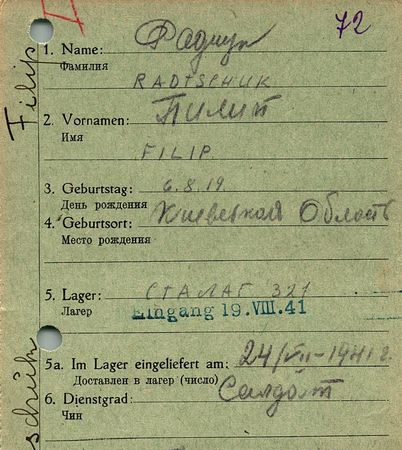 72
1. Name: Радчук
Фамилия
RADTSCHUK
2. Vornamen: Пилип
Имя
FILIP
3. Geburtstag: 6.8.19.
День рождения
4. Geburtsort: Киевская Область
Место рождения
5. Lager: СТАЛАГ 321
Лагер
Eingang 19. VIII. 41
5a. Im Lager eingeliefert am: 24/VII-1941 г.
Доставлен в лагер (число)
6. Dienstgrad: Салдат
Чин
Filip
schuk